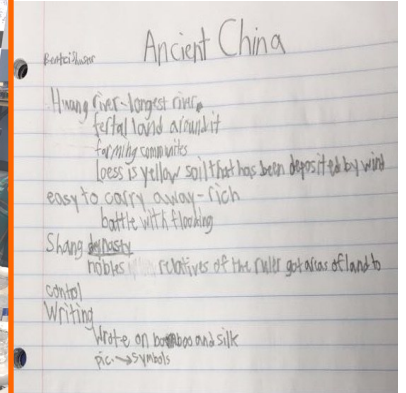 Ancient China
Hwang river-longest river
fertal land around it
farming communites
loess is yellow soil that has been deposited by wind
easy to carry away-rich
battle with flooding
Shang dynasty
nobles relatives of the ruler got areas of land to
control
Writing
Wrote on bamboo and silk
pic. → symbols